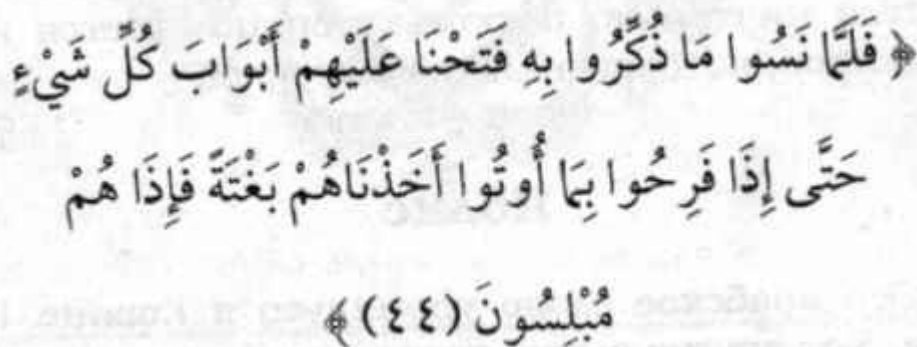 ﴿ فَلَمَّا نَسُوا مَا ذُكِّرُوا بِهِ فَتَحْنَا عَلَيْهِمْ أَبْوَابَ كُلِّ شَيْءٍ
حَتَّى إِذَا فَرِحُوا بِمَا أُوتُوا أَخَذْنَاهُمْ بَغْتَةً فَإِذَا هُمْ
مُبْلِسُونَ (٤٤)﴾